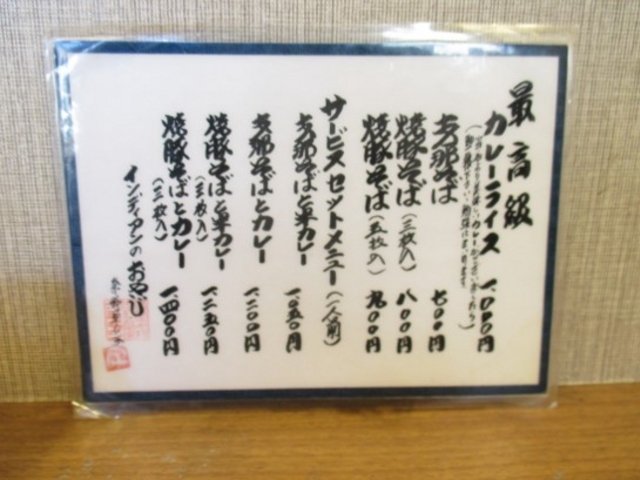 最高級
カレーライス 一、〇〇〇円
支那そば 七〇〇円
焼豚そば(三枚入) 八〇〇円
焼豚そば(五枚入) 九〇〇円
サービスセットメニュー(一人前)
支那そばと半カレー 一、〇五〇円
支那そばとカレー 一、二〇〇円
焼豚そばと半カレー(三枚入) 一、二五〇円
焼豚そばとカレー(三枚入) 一、四〇〇円
インディアンのおやじ